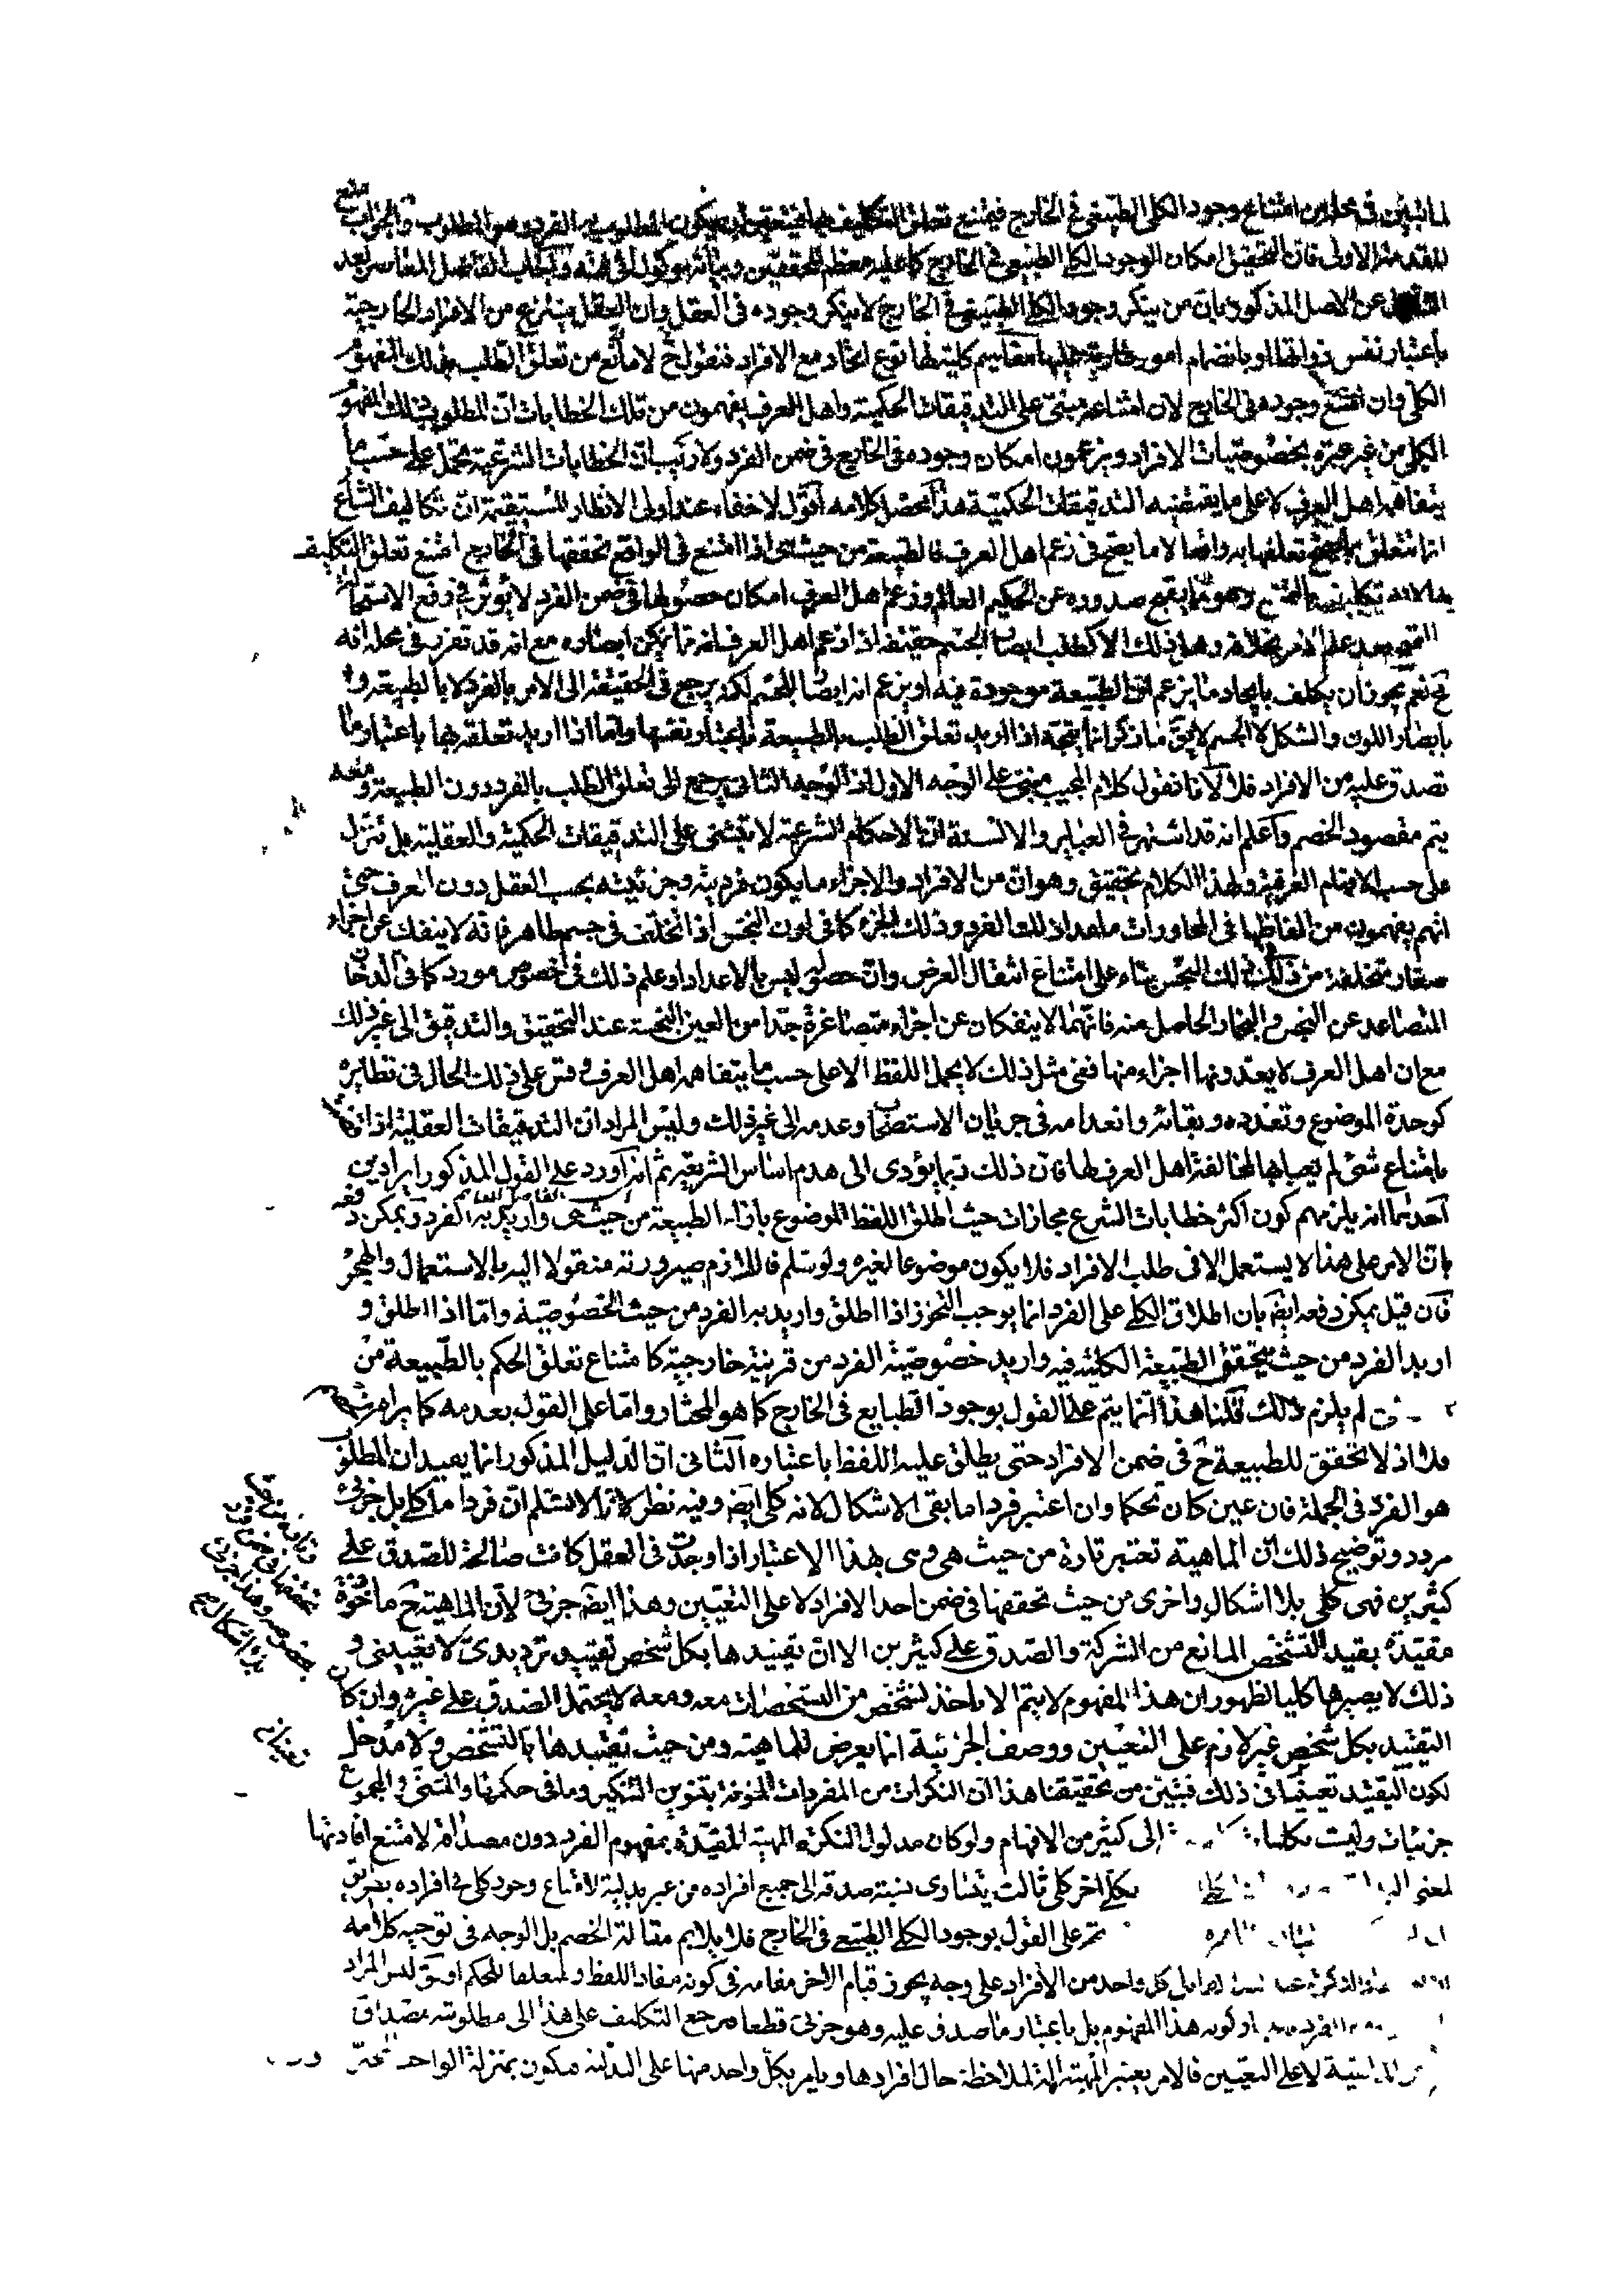 لما تبين في محله من امتناع وجود الكلي الطبيعي في الخارج فيمتنع تعلق التكليف به فيتعين ان يكون المطلوب به الفرد وهو المطلوب والجواب منع
المقدمة الاولى فان التحقيق امكان الوجود الكلي الطبيعي في الخارج كما عليه معظم المحققين وبيانه موكول الى فنه واجاب الفاضل المعاصر بعد
عن الاصل المذكور بان من ينكر وجود الكلي الطبيعي في الخارج لا ينكر وجوده في العقل وان العقل ينتزع من الافراد الخارجية
باعتبار نفس ذواتها او بانضمام امور خارجية اليها مفاهيم كلية لها نوع اتحاد مع الافراد فنقول ح لا مانع من تعلق الطلب بذلك المفهوم
الكلي وان امتنع وجوده في الخارج لان امتناعه مبني على التدقيقات الحكمية واهل العرف يفهمون من تلك الخطابات ان المطلوب ذلك المفهوم
الكلي من غير عبرة بخصوصيات الافراد ويزعمون امكان وجوده في الخارج في ضمن الفرد ولا ريب ان الخطابات الشرعية تحمل على حسب ما
يتفاهمه اهل العرف لا على ما يقتضيه التدقيقات الحكمية هذا محصل كلامه اقول لا خفاء عند اولى الانظار المستقيمة ان تكاليف الشارع
انما تتعلق بما يصح تعلقها به واقعا لا ما يصح في زعم اهل العرف فالطبيعة من حيث هي اذا امتنع في الواقع تحققها في الخارج امتنع تعلق التكليف
بها لانه تكليف بالممتنع وهو مما يقبح صدوره عن الحكيم العالم وزعم اهل العرف امكان حصولها في ضمن الفرد لا يؤثر في دفع الاستحالة
القبح بعد علم الامر بخلافه وهل ذلك الا كطلب ابصار الجسم حقيقة اذا زعم اهل العرف انه مما يمكن ابصاره مع انه قد تقرر في محله انه
نعم يجوز ان يكلف بايجاد ما يزعم ان الطبيعة موجودة فيه او يزعم انه ابصار للجسم لكنه يرجع في الحقيقة الى الامر بالفرد لا بالطبيعة و
بابصار اللون والشكل لا الجسم لا يق ما ذكر انما يتجه اذا اريد تعلق الطلب بالطبيعة باعتبار نفسها واما اذا اريد تعلقه بها باعتبار ما
تصدق عليه من الافراد فلا لانا نقول كلام المجيب مبني على الوجه الاول اذ الوجه الثاني يرجع الى تعلق الطلب بالفرد دون الطبيعة ومعه
يتم مقصود الخصم واعلم انه قد اشتهر في العباير والالسنة ان الاحكام الشرعية لا تبتني على التدقيقات الحكمية والعقلية بل تنزل
على حسب الافهام العرفية ولهذا الكلام تحقيق وهو ان من الافراد والاجزاء ما يكون فرديته وجزئيته بحسب العقل دون العرف حيث
انهم يفهمون من الفاظها في المحاورات ما عدا ذلك الفرد وذلك الجزء كما في لون النجس اذا تخلف في جسم طاهر فانه لا ينفك عن اجزاء
صغار متخلفة من ذلك النجس بناء على امتناع انتقال العرض وان حصوله ليس بالاعداد او علم ذلك في خصوص مورد كما في الدخان
المتصاعد عن النجس والبخار الحاصل منه فانهما لا ينفكان عن اجزاء متصاغرة جدا من العين النجسة عند التحقيق والتدقيق الى غير ذلك
مع ان اهل العرف لا يعدونها اجزاء منها ففي مثل ذلك لا يحمل اللفظ الا على حسب ما يتفاهمه اهل العرف وقس على ذلك الحال في نظائره
كوحدة الموضوع وتعدده وبقائه وانعدامه في جريان الاستصحاب وعدمه الى غير ذلك وليس المراد ان التدقيقات العقلية اذا قضت
بامتناع شئ لم يعبا بها لمخالفة اهل العرف لها فان ذلك ربما يؤدي الى هدم اساس الشريعة ثم انه اورد على القول المذكور ايرادين
الفاضل المعاصر
احدهما انه يلزمهم كون اكثر خطابات الشرع مجازات حيث اطلق اللفظ الموضوع بازاء الطبيعة من حيث هي واريد به الفرد ويمكن دفعه
بان الامر على هذا لا يستعمل الا في طلب الافراد فلا يكون موضوعا لغيره ولو سلم فاللازم صيرورته منقولا اليه بالاستعمال والهجر
فان قيل يمكن دفعه ايضا بان اطلاق الكلي على الفرد انما يوجب التجوز اذا اطلق واريد به الفرد من حيث الخصوصية واما اذا اطلق و
اريد الفرد من حيث تحقق الطبيعة الكلية فيه واريد خصوصية الفرد من قرينة خارجية كامتناع تعلق الحكم بالطبيعة من
لم يلزم ذلك قلنا هذا انما يتم على القول بوجود الطبايع في الخارج كما هو المختار واما على القول بعدمه كما يراه
فلا اذ لا تحقق للطبيعة ح في ضمن الافراد حتى يطلق عليه اللفظ باعتباره الثاني ان الدليل المذكور انما يفيد ان المطلوب
هو الفرد في الجملة فان عين كان تحكما وان اعتبر فردا ما بقي الاشكال لانه كلي ايضا وفيه نظر لانا لا نسلم ان فردا ما كلي بل جزئي
مردد وتوضيح ذلك ان الماهية تعتبر تارة من حيث هي وهى بهذا الاعتبار اذا وجدت في العقل كانت صالحة للصدق على
كثيرين فهى كلي بلا اشكال واخرى من حيث تحققها في ضمن احد الافراد لا على التعيين وهذا ايضا جزئي لان الماهية ح ماخوذة
مقيدة بقيد التشخص المانع من الشركة والصدق على كثيرين الا ان تقييدها بكل شخص تقييد ترديدي لا تعييني و
ذلك لا يصيرها كليا لظهور ان هذا المفهوم لا يتم الا باخذ تشخص من التشخصات معه ومعه لا يحتمل الصدق على غيره وان كان
التقييد بكل شخص غير لازم على التعيين ووصف الجزئية انما يعرض للماهية من حيث تقييدها بالتشخص ولا مدخل
لكون التقييد تعيينيا في ذلك فتبين من تحقيقنا هذا ان النكرات من المفردات المنونة بتنوين التنكير وما في حكمها والمثنى والمجموع
جزئيات وليست كليات الى كثير من الافهام ولو كان مدلول النكرة المهية المقيدة بمفهوم الفرد دون مصداقه لامتنع افادتها
لمعنى بكلي اخر كلي ثالث يتساوى نسبة صدقه الى جميع افراده من غير بدلية لامتناع وجود كلي في افراده
على القول بوجود الكلي الطبيعي في الخارج فلا يلايم مقالة الخصم بل الوجه في توجيه كلامه
بل كل واحد من الافراد على وجه يجوز قيام الاخر مقامه في كونه مفاد اللفظ ومتعلقا للحكم اذ ليس المراد
هذا المفهوم بل باعتبار ما صدق عليه وهو جزئي قطعا ومرجع التكليف على هذا الى مطلوبية مصداق
لا على التعيين فالامر يعتبر المهية لملاحظة حال افرادها ويامر بكل واحد منها على البدلية فيكون بمنزلة الواجب